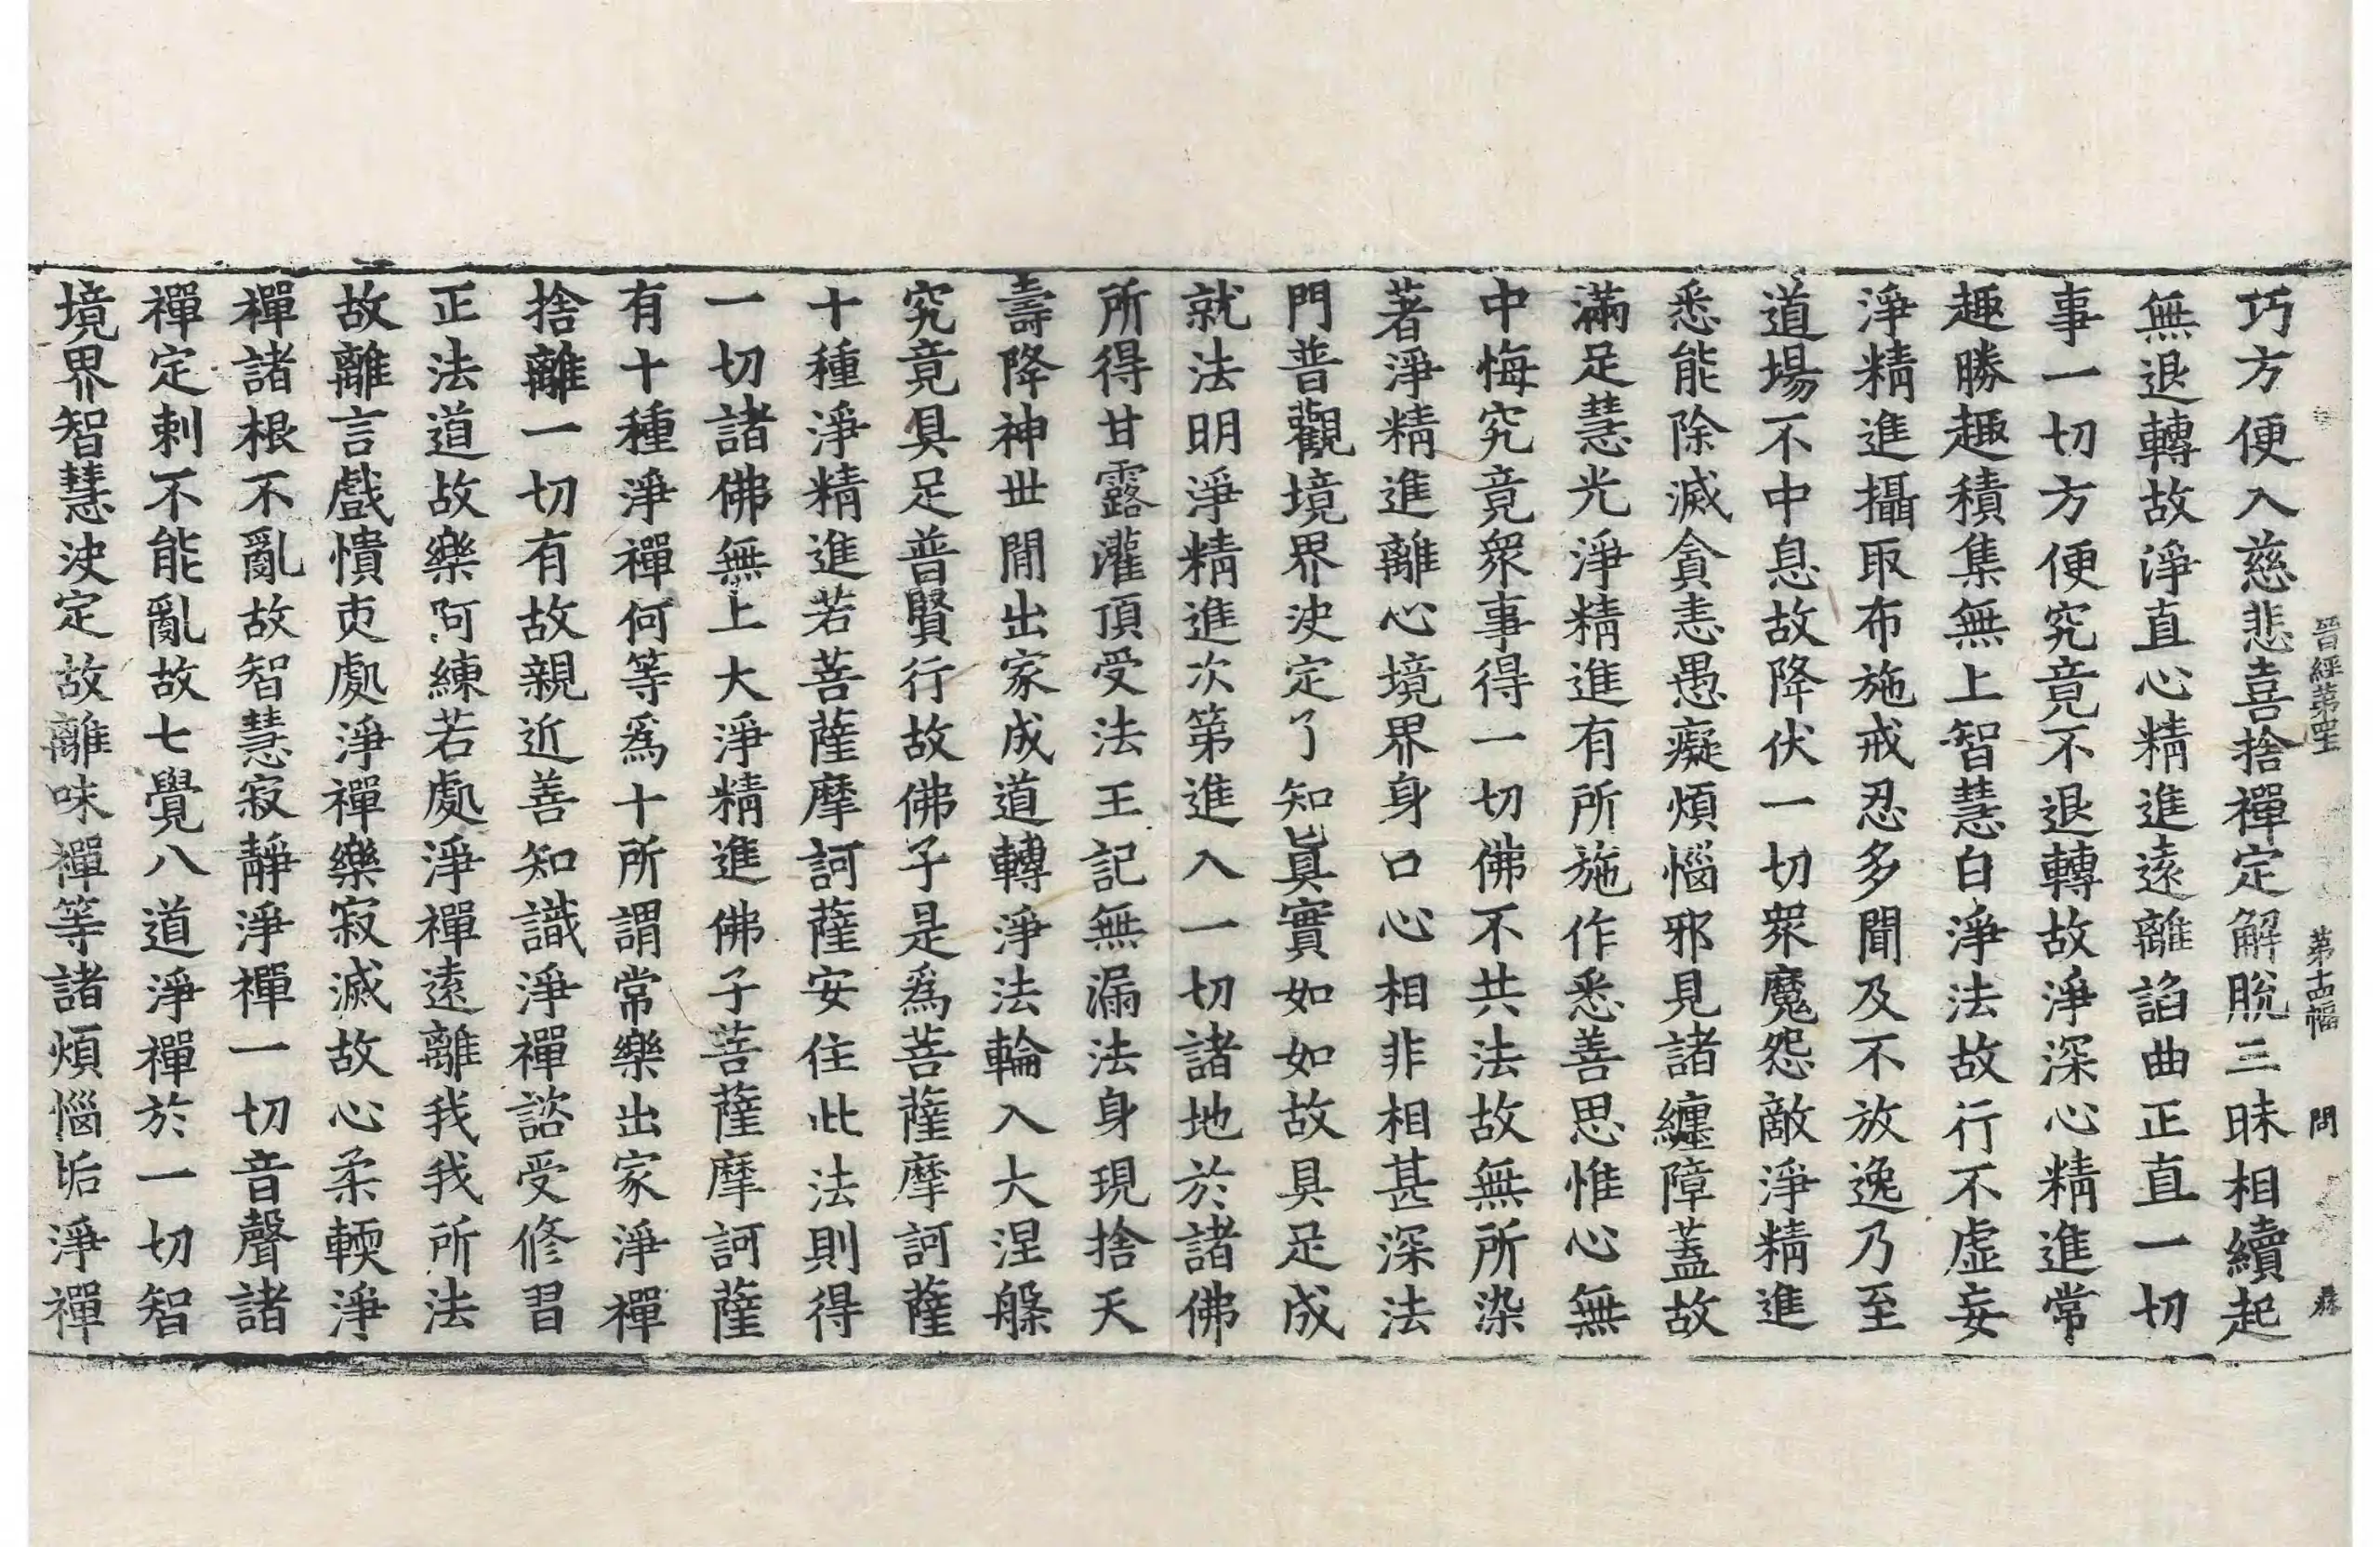 晋經第四十一 第十四幅 問 森
巧方便入慈悲喜捨禪定解脫三昧相續起
無退轉故淨直心精進遠離諂曲正直一切
事一切方便究竟不退轉故淨深心精進常
趣勝趣積集無上智慧白淨法故行不虛妄
淨精進攝取布施戒忍多聞及不放逸乃至
道場不中息故降伏一切眾魔怨敵淨精進
悉能除滅貪恚愚癡煩惱邪見諸纏障蓋故
滿足慧光淨精進有所施作悉善思惟心無
中悔究竟眾事得一切佛不共法故無所染
著淨精進離心境界身口心相非相甚深法
門普觀境界決定了知眞實如如故具足成
就法明淨精進次第進入一切諸地於諸佛
所得甘露灌頂受法王記無漏法身現捨天
壽降神世間出家成道轉淨法輪入大涅槃
究竟具足普賢行故佛子是爲菩薩摩訶薩
十種淨精進若菩薩摩訶薩安住此法則得
一切諸佛無上大淨精進佛子菩薩摩訶薩
有十種淨禪何等爲十所謂常樂出家淨禪
捨離一切有故親近善知識淨禪諮受修習
正法道故樂阿練若處淨禪遠離我我所法
故離言戲憒吏處淨禪樂寂滅故心柔輭淨
禪諸根不亂故智慧寂靜淨禪一切音聲諸
禪定刺不能亂故七覺八道淨禪於一切智
境界智慧決定故離味禪等諸煩惱垢淨禪